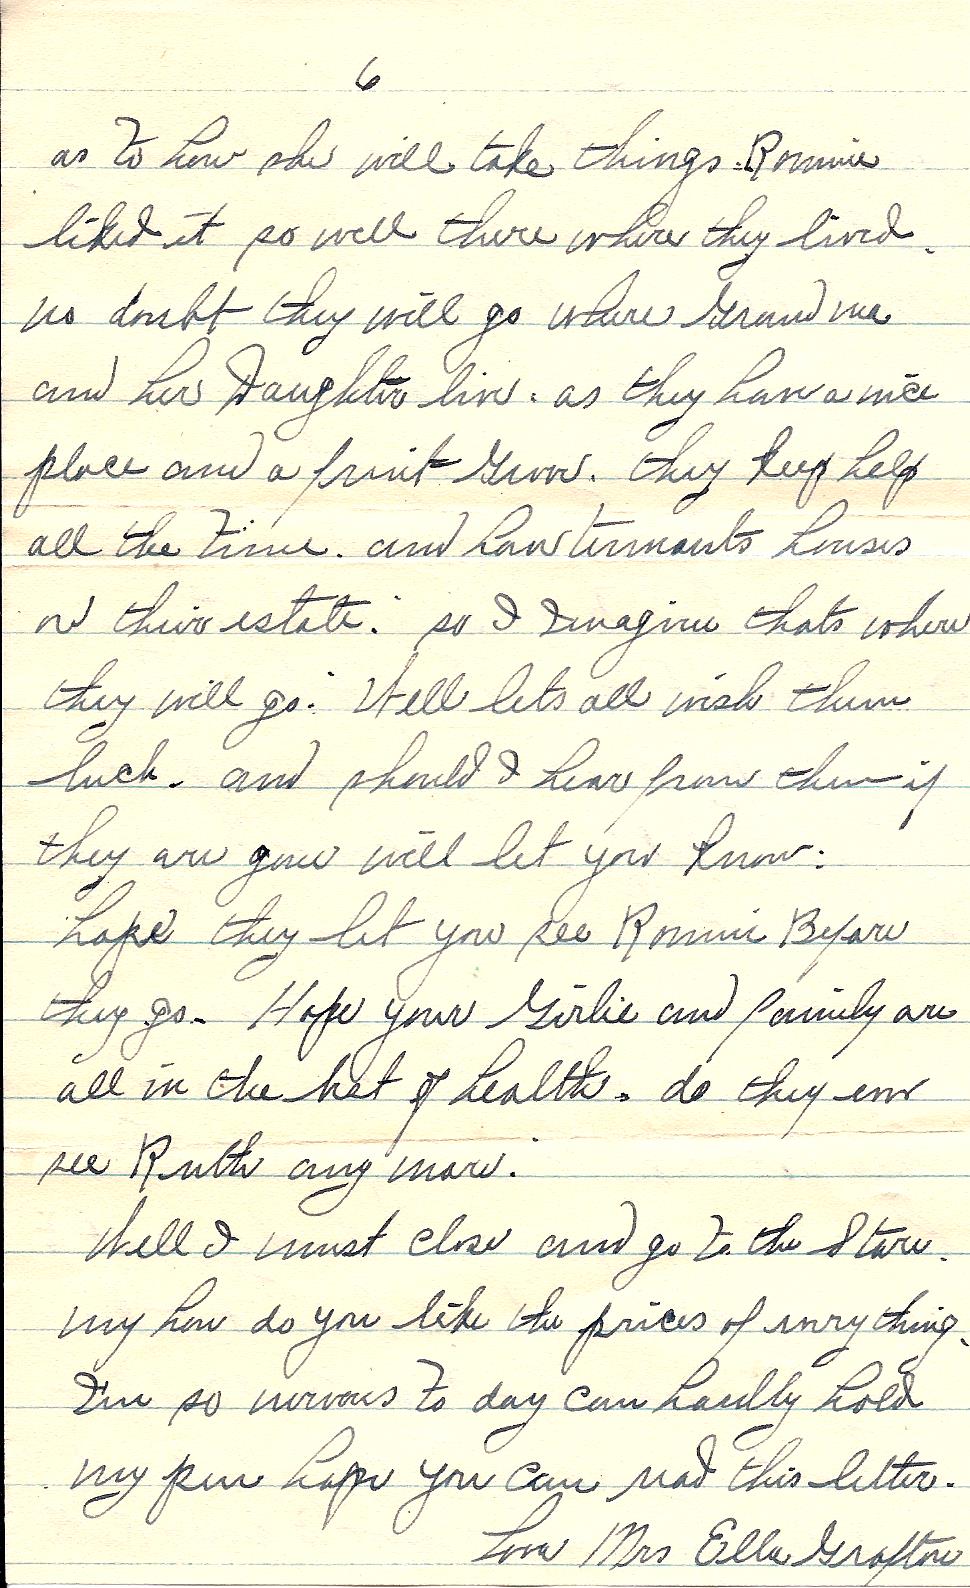 6
as to how she will take things. Ronnie
liked it so well there where they lived.
no doubt they will go where Grand ma
and her Daughter live. as they have a nice
place and a fruit Grove. they keep help
all the time. and have tennants houses
on their estate. so I Imagine thats where
they will go. Well lets all wish them
luck. and should I hear from them if
they are gone will let you know.
hope they let you see Ronnie Before
they go. Hope your Girlie and family are
all in the best of health. do they ever
see Ruth any more.
Well I must close and go to the Store.
my how do you like the prices of every thing.
I'm so nervous to day can hardly hold
my pen hope you can read this letter.
Love Mrs Ella Grafton